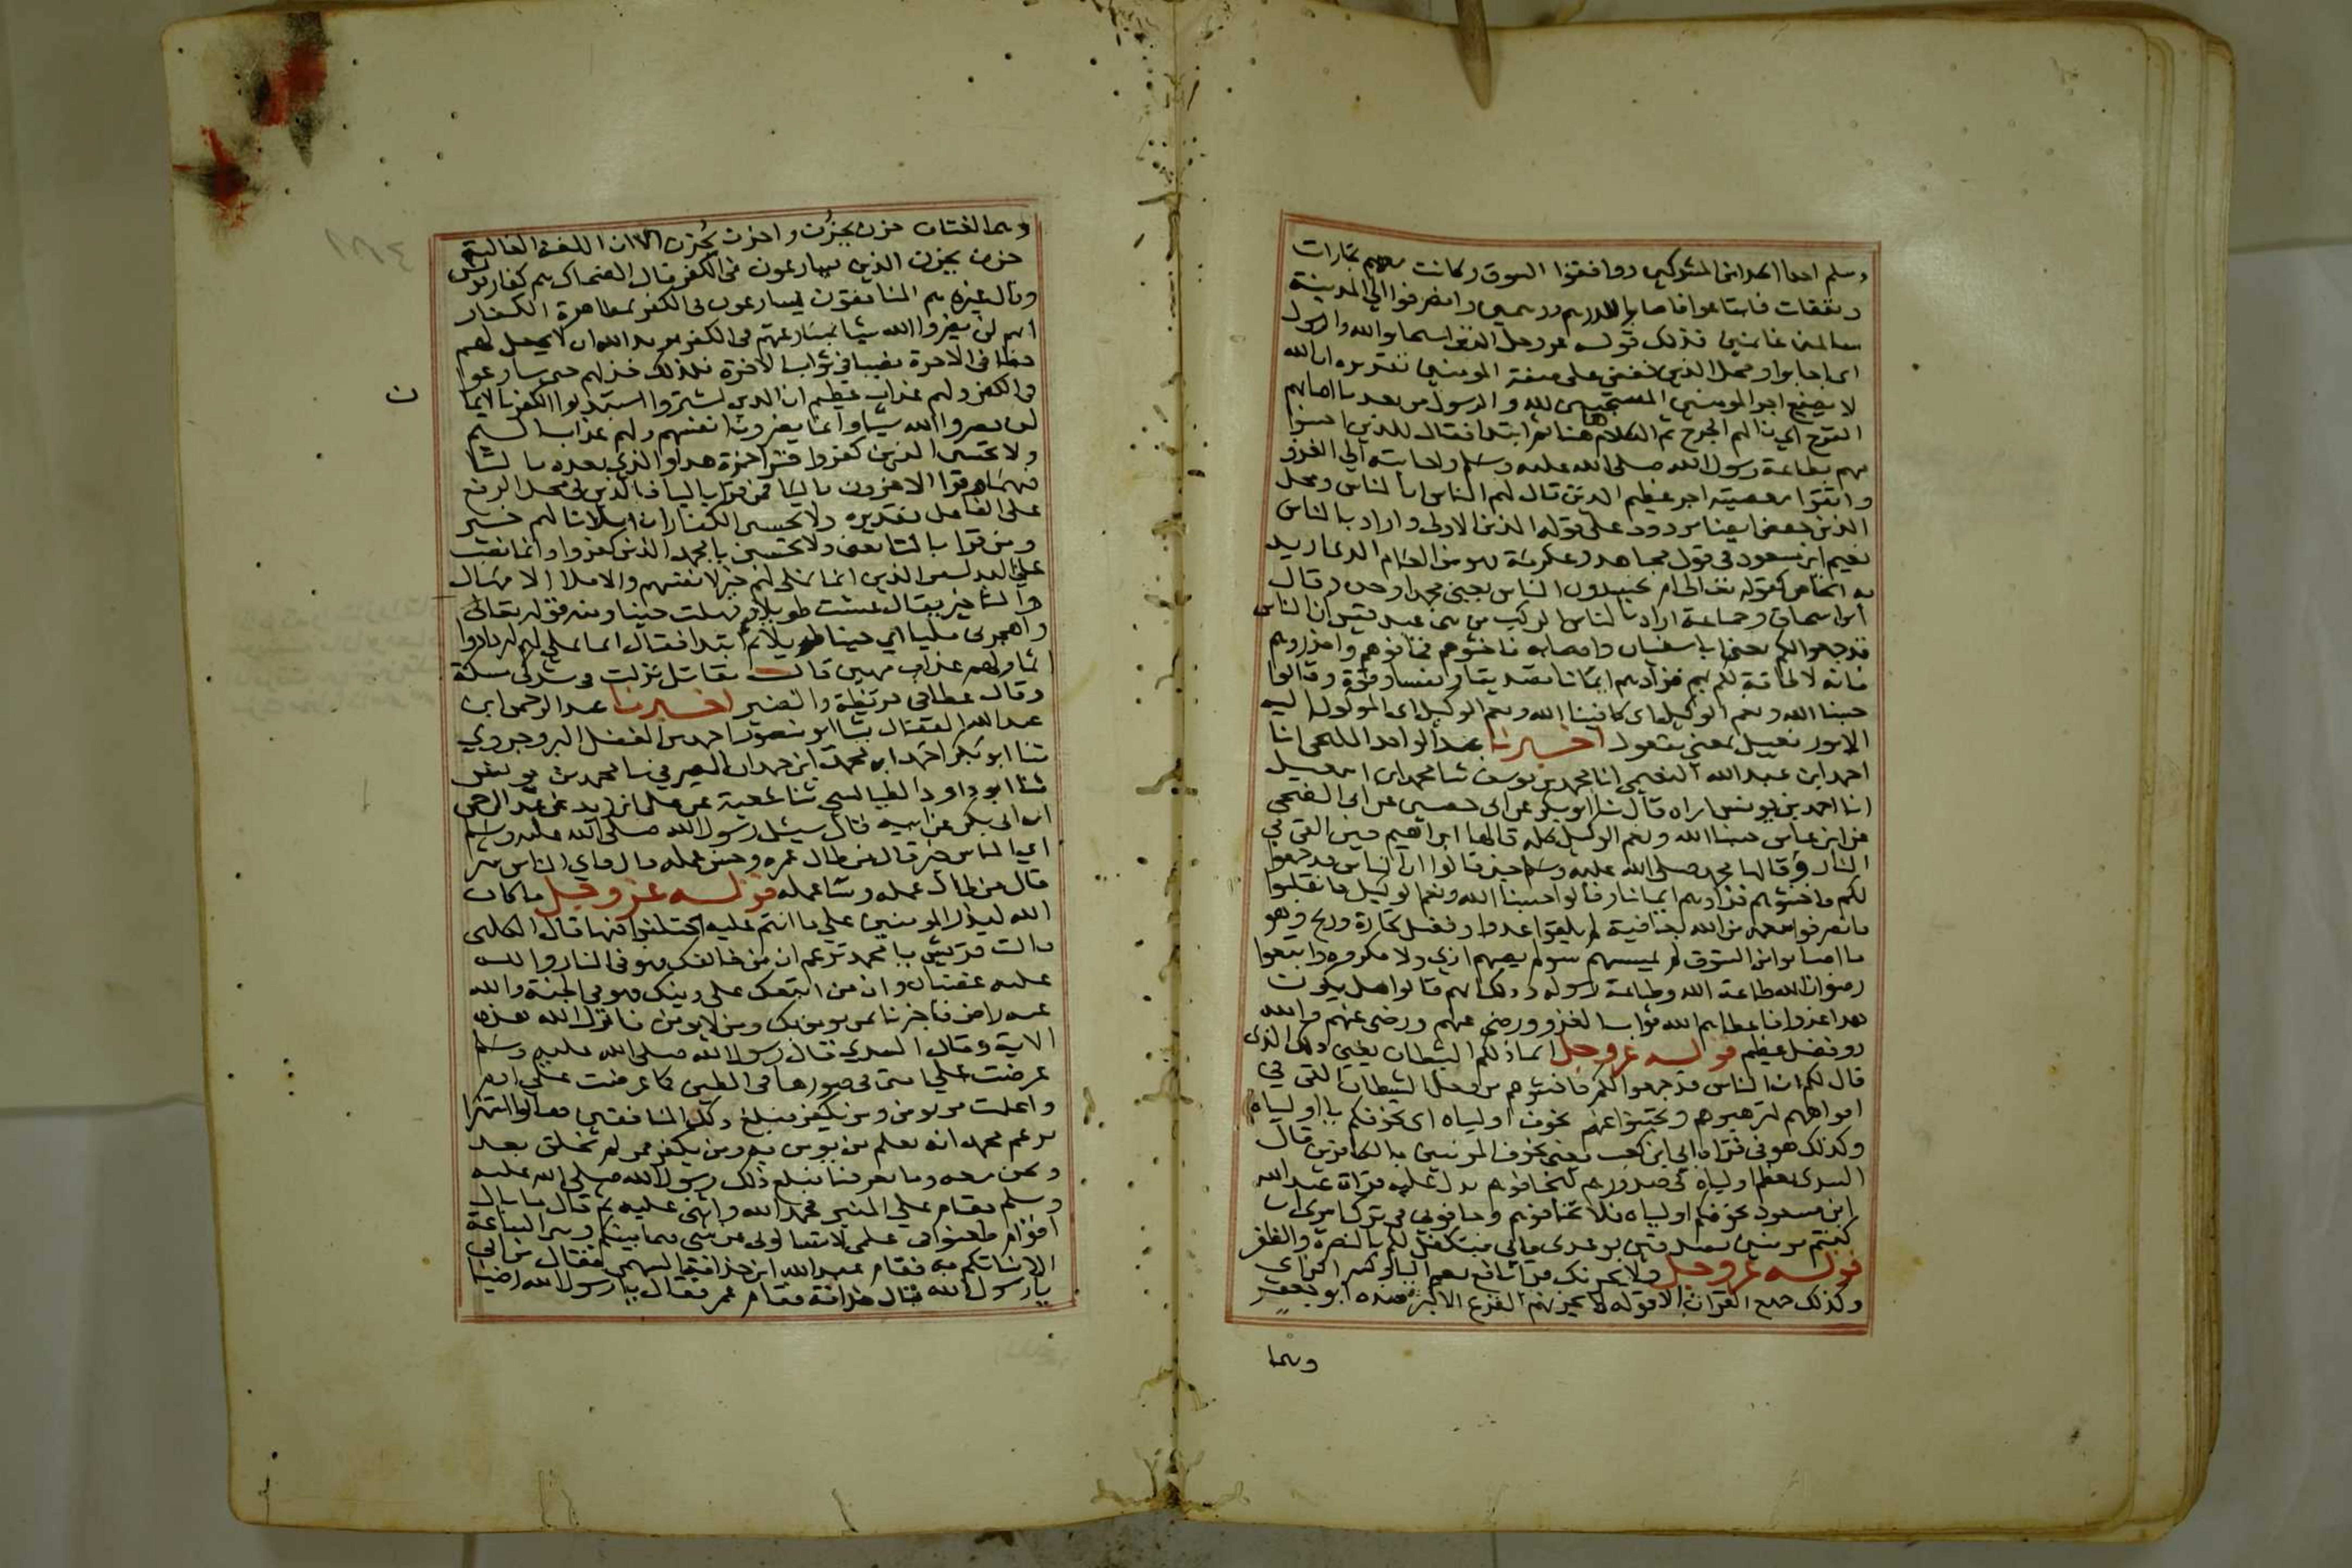 وسلم احدا احدا من المشركين ووافقوا السوق وكانت معهم تجارات
ونفقات فباعوا فاصابوا بالدرهم درهمين وانصرفوا الى المدينة
سالمين غانمين فذلك قوله عز وجل الذين استجابوا لله والرسول
اى اجابوا ومحل الذين خفض على صفة المومنين تقديره ان الله
لا يضيع اجر المومنين المستجيبين لله والرسول من بعد ما اصابهم
القرح اي نالهم الجرح تم الكلام هاهنا ثم ابتدا فقال للذين احسنوا
منهم بطاعة رسول الله صلى الله عليه وسلم واجابته الى الغزو
واتقوا معصيته اجر عظيم الذين قال لهم الناس ان الناس ومحل
الذين خفض ايضا مردود على قوله الذين الاولى واراد بالناس
نعيم ابن مسعود في قول مجاهد وعكرمة فهو من العام الذى اريد
به الخاص كقوله تعالى ام يحسدون الناس يعنى محمدا وحده وقال
ابن اسحاق وجماعة اراد بالناس الركب من بنى عبد قيس ان الناس
قد جمعوا لكم يعنى ابا سفيان واصحابه فاخشوهم فخافوهم واحذروهم
فانه لا طاقة لكم بهم فزادهم ايمانا تصديقا ويقينا وقوة وقالوا
حسبنا الله ونعم الوكيل اى كافينا الله ونعم الوكيل اى الموكول اليه
الامور فعيل بمعنى مفعول اخبرنا عبد الواحد المليحى انا
احمد ابن عبد الله النعيمي انا محمد بن يوسف ثنا محمد ابن اسمعيل
انا احمد بن يونس اراه قال ثنا ابو بكر عن ابى حصين عن ابى الضحى
عن ابن عباس حسبنا الله ونعم الوكيل كلمة قالها ابراهيم حين القى في
النار وقالها محمد صلى الله عليه وسلم حين قالوا ان الناس قد جمعوا
لكم فاخشوهم فزادهم ايمانا وقالوا حسبنا الله ونعم الوكيل فانقلبوا
فانصرفوا بنعمة من الله بعافية لم يلقوا عدوا وفضل تجارة وربح وهو
ما اصابوا من السوق لم يمسسهم سوء لم يصبهم اذى ولا مكروه واتبعوا
رضوان الله طاعة الله وطاعة رسوله وذلك انهم قالوا هل يكون
هذا غزوا فاعطاهم الله ثواب الغزو ورضى عنهم ورضى عنهم والله
ذو فضل عظيم قوله عز وجل انما ذلكم الشيطان يعنى ذلك الذى
قال لكم ان الناس قد جمعوا لكم فاخشوهم من فعل الشيطان القى في
افواههم لترهبوهم وتجبنوا عنهم يخوف اولياه اى يخوفكم باولياه
وكذلك هو في قراة ابي ابن كعب يعنى يخوف المومنين بالكافرين قال
السدى يعظم اولياه في صدورهم ليخافوهم يدل عليه قراة عبد الله
ابن مسعود يخوفكم اولياه فلا تخافوهم وخافونى في ترك امرى ان
كنتم مومنين مصدقين بوعدى فانى متكفل لكم بالنصرة والظفر
قوله عز وجل ولا يحزنك قرا نافع بضم اليا وكسر الزاى
وكذلك جميع القران الا قوله لا يحزنهم الفزع الاكبر ضده ابو جعفر
وهما
وهما لغتان حزن يحزن واحزن يحزن الا ان اللغة الغالبة
حزن يحزن الذين يسارعون في الكفر قال الضحاك هم كفار قريش
وقال غيره هم المنافقون يسارعون فى الكفر بمظاهرة الكفار
انهم لن يضروا الله شيا بمسارعتهم في الكفر يريد الله ان لا يجعل لهم
حظا فى الاخرة نصيبا في ثواب الاخرة فلذلك خذلهم حتى سارعوا
في الكفر ولهم عذاب عظيم ان الذين اشتروا استبدلوا الكفر بالايمان
لن يضروا الله شيا وانما يضرون انفسهم ولهم عذاب اليم
ن
ولا تحسبن الذين كفروا قرا حمزة هذا والذي بعده بالتا
فيهما وقرا الاخرون باليا فمن قرا باليا فالذين فى محل الرفع
على الفاعل تقديره ولا يحسبن الكفار ان املانا لهم خير
ومن قرا بالتا يعنى ولا تحسبن يا محمد الذين كفروا وانما نصب
على البدل من الذين انما نملى لهم خير لانفسهم والاملا الامهال
والتاخير يقال عشت طويلا وتمليت حينا ومنه قوله تعالى
واهجرنى مليا اي حينا طويلا ثم ابتدا فقال انما نملى لهم ليزدادوا
اثما ولهم عذاب مهين قال مقاتل نزلت فى مشركى مكة
وقال عطا في قريظة والنضير اخبرنا عبد الرحمن ابن
عبد الله القفال ثنا ابو منصور احمد بن الفضل البروجردي
ثنا ابو بكر احمد ابن محمد ابن حمدان الصيرفي ثنا محمد بن يونس
ثنا ابو داود الطيالسي ثنا شعبة عن على ابن زيد عن عبد الرحمن
ابن ابى بكر عن ابيه قال سيل رسول الله صلى الله عليه وسلم
اي الناس خير قال من طال عمره وحسن عمله قال فاي الناس شر
قال من طال عمله وسا عمله قوله عز وجل ما كان
الله ليذر المومنين على ما انتم عليه اختلفوا فيها قال الكلبى
قالت قريش يا محمد تزعم ان من خالفك فهو في النار والله
عليه غضبان وان من اتبعك على دينك فهو في الجنة والله
عنه راض فاخبرنا بمن يومن بك ومن لا يومن فانزل الله هذه
الاية وقال السدي قال رسول الله صلى الله عليه وسلم
عرضت على امتى فى صورها فى الطين كما عرضت على ادم
واعلمت من يومن ومن يكفر فبلغ ذلك المنافقين فقالوا استهزا
يزعم محمد انه يعلم من يومن به ومن يكفر ممن لم يخلق بعد
ونحن معه وما يعرفنا فبلغ ذلك رسول الله صلى الله عليه
وسلم فقام على المنبر فحمد الله واثنى عليه ثم قال ما بال
اقوام طعنوا في علمى لا تسالونى عن شى فيما بينكم وبين الساعة
الا نباتكم به فقام عبد الله ابن حذافة السهمى فقال من ابى
يا رسول الله قال حذافة فقام عمر فقال يا رسول الله رضينا